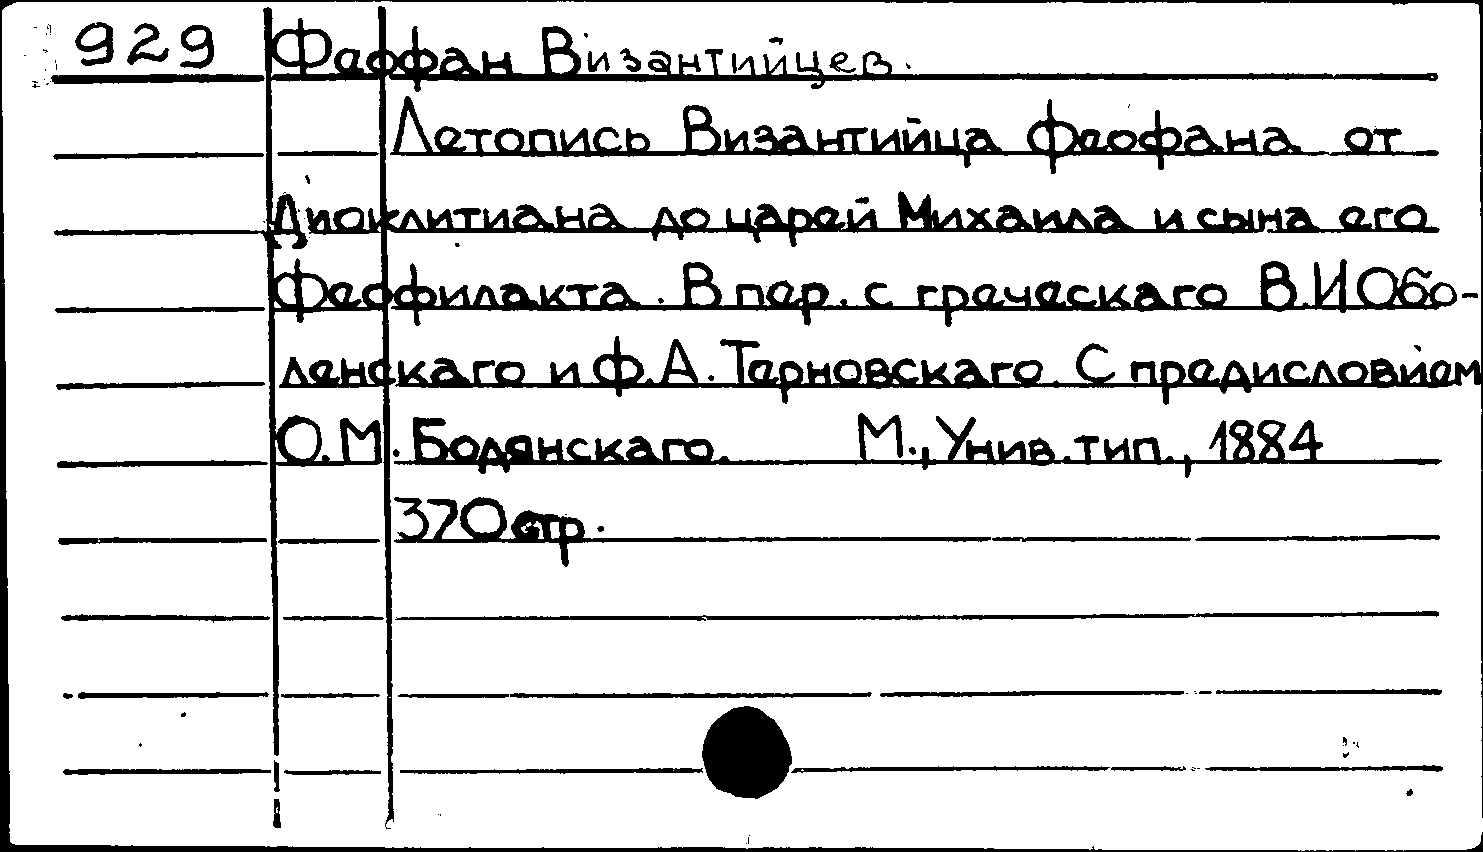 929 Феофан Византийцев.
Летопись Византийца Феофана от
Диоклитиана до царей Михаила и сына его
Феофилакта. В пер. с греческаго В.И Обо-
ленскаго и Ф.А. Терновскаго. С предисловием
О.М. Бодянскаго. М., Унив. тип., 1884
370 стр.